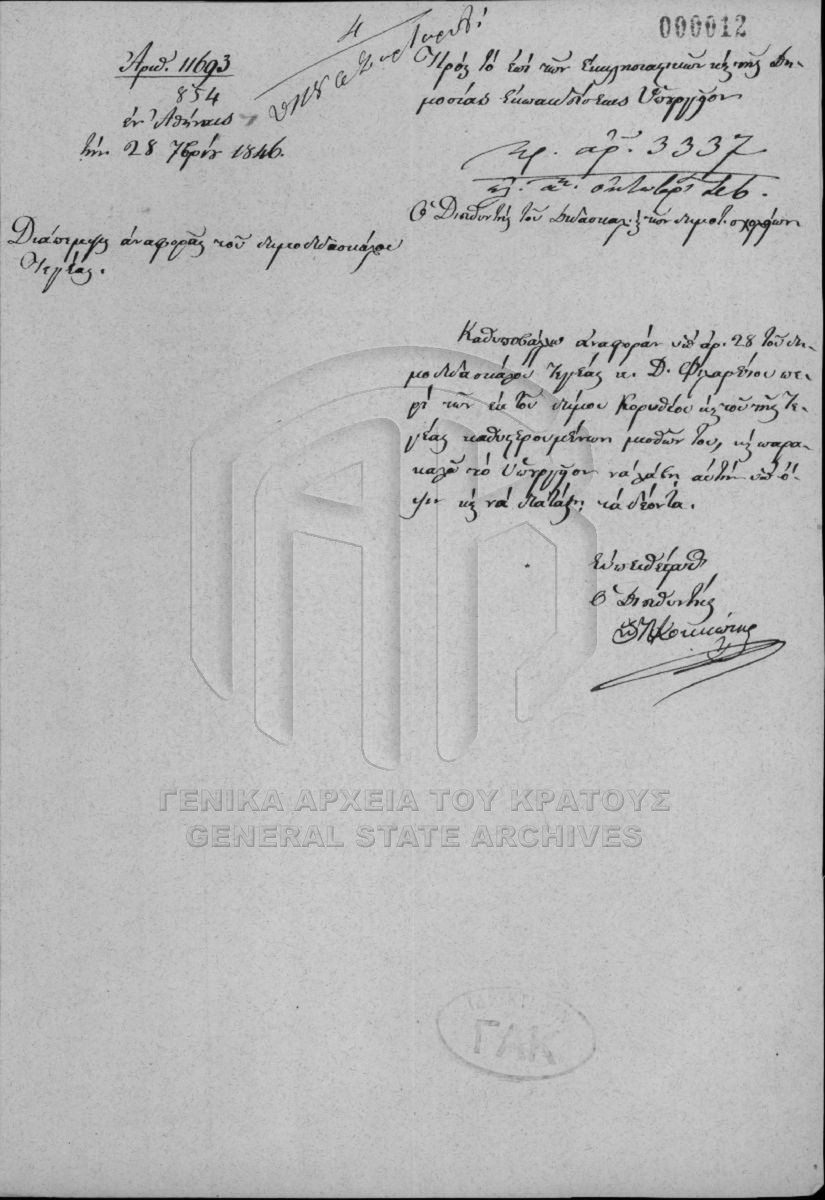 000012
4
Ἀριθ. 11693
854
ἐν Ἀθήναις
τὴν 28 7βρίου 1846.
Πρὸς τὸ ἐπὶ τῶν Ἐκκλησιαστικῶν κ τῆς Δη-
μοσίας Ἐκπαιδεύσεως Ὑπουργεῖον
πρ. ἀρ. 3337
Ὁ Διευθυντὴς τοῦ Διδασκαλ. κ τῶν δημοτ. σχολείων
Διάπεμψις ἀναφορᾶς τοῦ δημοδιδασκάλου
Τεγέας.
Καθυποβάλλω ἀναφορὰν ὑπ' ἀρ. 28 τοῦ δη-
μοδιδασκάλου Τεγέας κ. Δ. Φιλαρέτου πε-
ρὶ τῶν ἐκ τοῦ δήμου Κορυθίου κ τοῦ τῆς Τε-
γέας καθυστερουμένων μισθῶν του, κ παρα-
καλῶ τὸ Ὑπουργεῖον νὰ λάβῃ αὐτὴν ὑπ' ὄ-
ψιν κ νὰ διατάξῃ τὰ δέοντα.
Εὐπειθέστατος
Ὁ Διευθυντής
Κοκκώνης
ΓΕΝΙΚΑ ΑΡΧΕΙΑ ΤΟΥ ΚΡΑΤΟΥΣ
GENERAL STATE ARCHIVES
ΓΑΚ